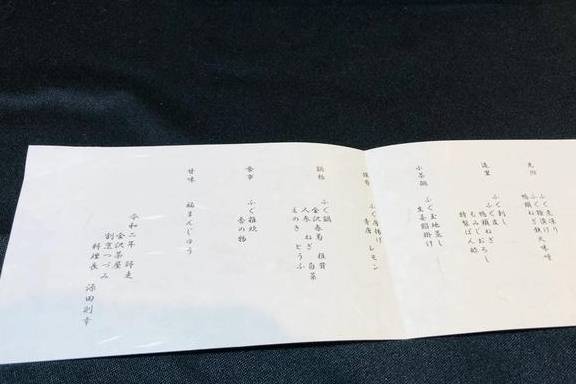 先附
ふぐ煮凍り
鴨頭ねぎ
造里
ふぐ刺し
ふぐ皮
鴨頭ねぎ
もみじおろし
特製ぽん酢
小茶碗
ふぐ玉地蒸し
生姜餡掛け
ふぐ唐揚げ
青唐 レモン
鍋物
ふぐ鍋
金沢春菊 椎茸
人参 ねぎ 白菜
えのき とうふ
食事
ふぐ雑炊
香の物
甘味
福まんじゅう
令和二年 師走
金沢茶屋
割烹つづみ
料理長 添田則幸